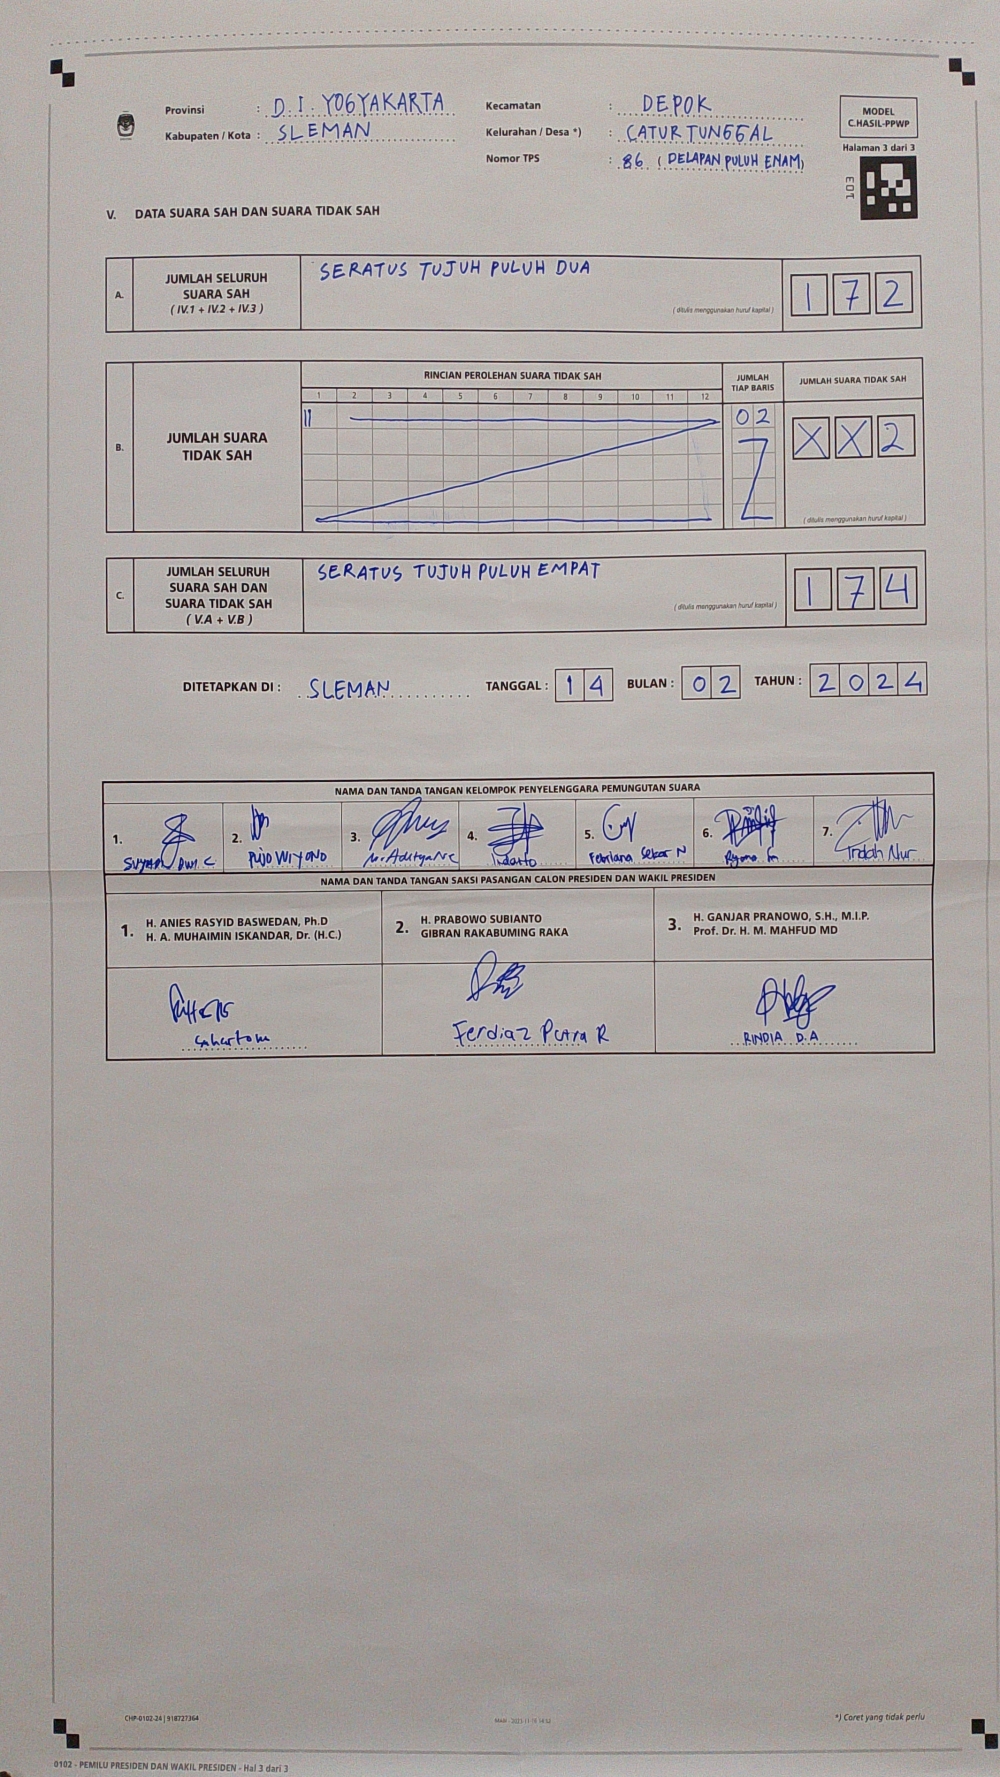 Provinsi : D.I. YOGYAKARTA
Kabupaten / Kota : SLEMAN
Kecamatan : DEPOK
Kelurahan / Desa *) : CATURTUNGGAL
Nomor TPS : 86 ( DELAPAN PULUH ENAM)
MODEL
C.HASIL-PPWP
Halaman 3 dari 3
V. DATA SUARA SAH DAN SUARA TIDAK SAH
A.
JUMLAH SELURUH
SUARA SAH
( IV.1 + IV.2 + IV.3 )
SERATUS TUJUH PULUH DUA
( ditulis menggunakan huruf kapital )
1 7 2
B.
JUMLAH SUARA
TIDAK SAH
RINCIAN PEROLEHAN SUARA TIDAK SAH
1 2 3 4 5 6 7 8 9 10 11 12
JUMLAH
TIAP BARIS
02
JUMLAH SUARA TIDAK SAH
X X 2
( ditulis menggunakan huruf kapital )
C.
JUMLAH SELURUH
SUARA SAH DAN
SUARA TIDAK SAH
( V.A + V.B )
SERATUS TUJUH PULUH EMPAT
( ditulis menggunakan huruf kapital )
1 7 4
DITETAPKAN DI : SLEMAN TANGGAL : 1 4 BULAN : 0 2 TAHUN : 2 0 2 4
NAMA DAN TANDA TANGAN KELOMPOK PENYELENGGARA PEMUNGUTAN SUARA
1. 2. 3. 4. 5. 6. 7.
PUJO WIYONO Indarto Febriana Sekar N Indah Nur
NAMA DAN TANDA TANGAN SAKSI PASANGAN CALON PRESIDEN DAN WAKIL PRESIDEN
1. H. ANIES RASYID BASWEDAN, Ph.D
H. A. MUHAIMIN ISKANDAR, Dr. (H.C.)
2. H. PRABOWO SUBIANTO
GIBRAN RAKABUMING RAKA
3. H. GANJAR PRANOWO, S.H., M.I.P.
Prof. Dr. H. M. MAHFUD MD
Ferdiaz Putra R
RINDIA D.A
CHP-0102-24 | 918727364
*) Coret yang tidak perlu
0102 - PEMILU PRESIDEN DAN WAKIL PRESIDEN - Hal 3 dari 3